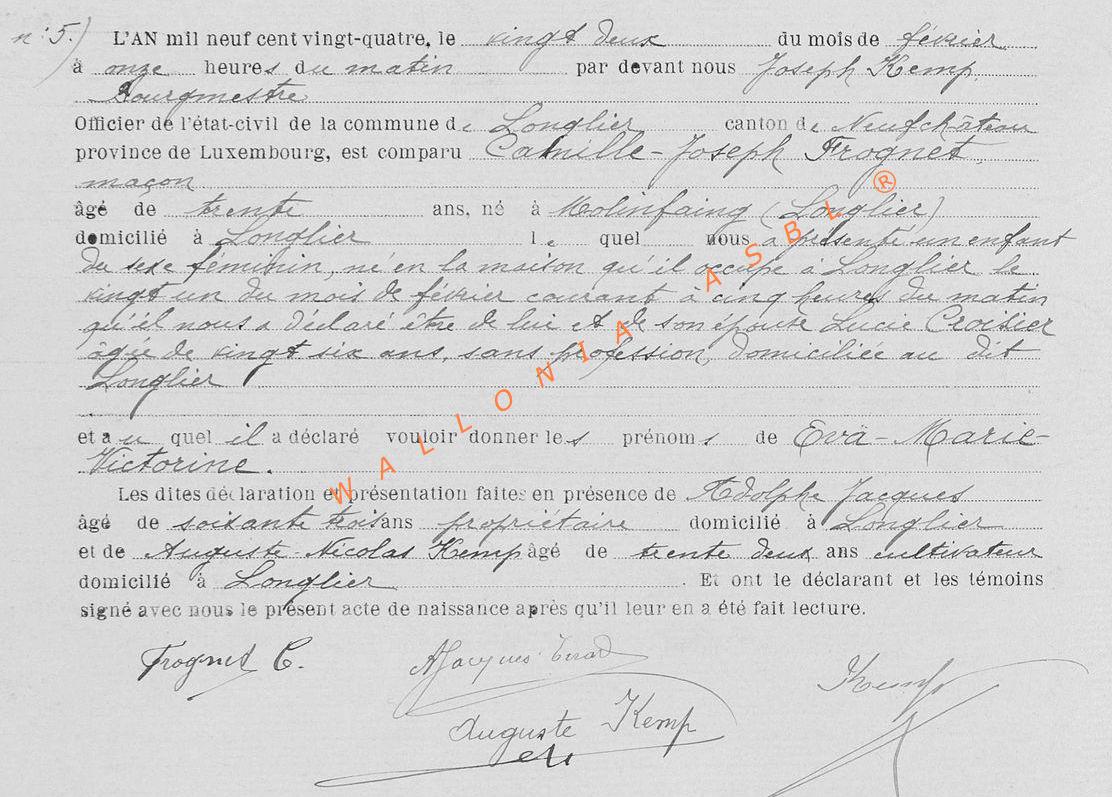 n: 5.) L'AN mil neuf cent vingt-quatre, le vingt deux du mois de février
à onze heures du matin par devant nous Joseph Kemp
Bourgmestre
Officier de l'état-civil de la commune de Longlier canton de Neufchâteau
province de Luxembourg, est comparu Camille-Joseph Frognet,
maçon
âgé de trente ans, né à Molinfaing (Longlier)
domicilié à Longlier le quel nous a présenté un enfant
du sexe féminin, né en la maison qu'il occupe à Longlier le
vingt un du mois de février courant à cinq heures du matin
qu'il nous a déclaré être de lui et de son épouse Lucie Croisier
âgée de vingt six ans, sans profession, domiciliée au dit
Longlier
et au quel il a déclaré vouloir donner les prénoms de Eva-Marie-
Victorine.
Les dites déclaration et présentation faites en présence de Adolphe Jacques
âgé de soixante trois ans propriétaire domicilié à Longlier
et de Auguste-Nicolas Kemp âgé de trente deux ans cultivateur
domicilié à Longlier. Et ont le déclarant et les témoins
signé avec nous le présent acte de naissance après qu'il leur en a été fait lecture.
Frognet C. AJacques Kemp
Auguste Kemp
WALLONIA ASBL ®